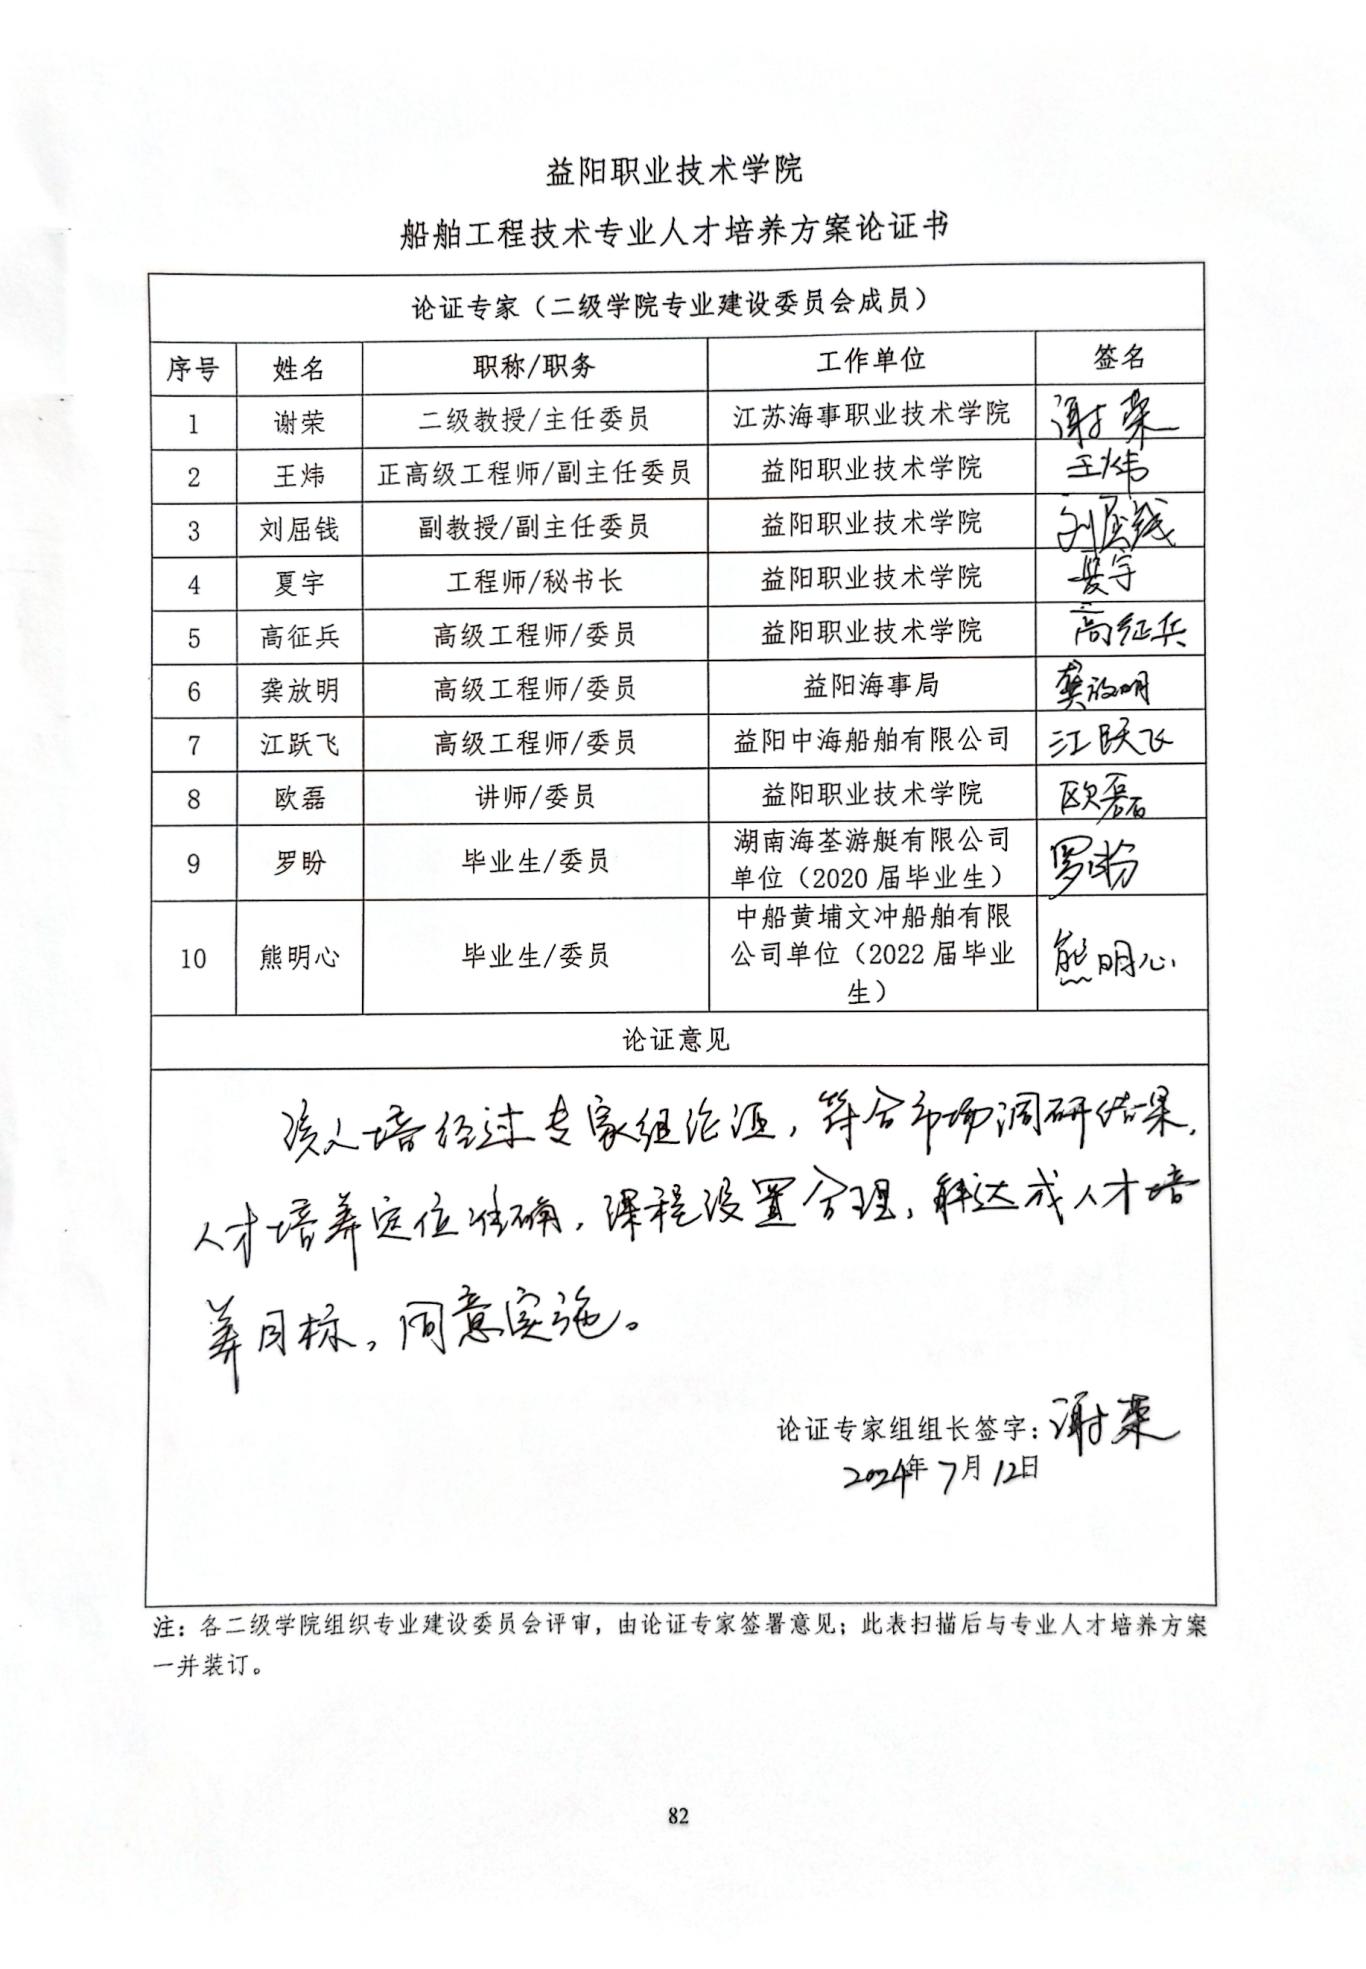 益阳职业技术学院
船舶工程技术专业人才培养方案论证书
论证专家（二级学院专业建设委员会成员）
序号 姓名 职称/职务 工作单位 签名
1 谢荣 二级教授/主任委员 江苏海事职业技术学院 谢荣
2 王炜 正高级工程师/副主任委员 益阳职业技术学院 王炜
3 刘屈钱 副教授/副主任委员 益阳职业技术学院 刘屈钱
4 夏宇 工程师/秘书长 益阳职业技术学院 夏宇
5 高征兵 高级工程师/委员 益阳职业技术学院 高征兵
6 龚放明 高级工程师/委员 益阳海事局 龚放明
7 江跃飞 高级工程师/委员 益阳中海船舶有限公司 江跃飞
8 欧磊 讲师/委员 益阳职业技术学院 欧磊
9 罗盼 毕业生/委员 湖南海荃游艇有限公司 罗盼
单位（2020 届毕业生）
中船黄埔文冲船舶有限
10 熊明心 毕业生/委员 公司单位（2022 届毕业 熊明心
生）
论证意见
该人培经过专家组论证，符合市场调研结果，
人才培养定位准确，课程设置合理，能达成人才培
养目标，同意实施。
论证专家组组长签字：谢荣
2024年7月12日
注：各二级学院组织专业建设委员会评审，由论证专家签署意见；此表扫描后与专业人才培养方案
一并装订。
82